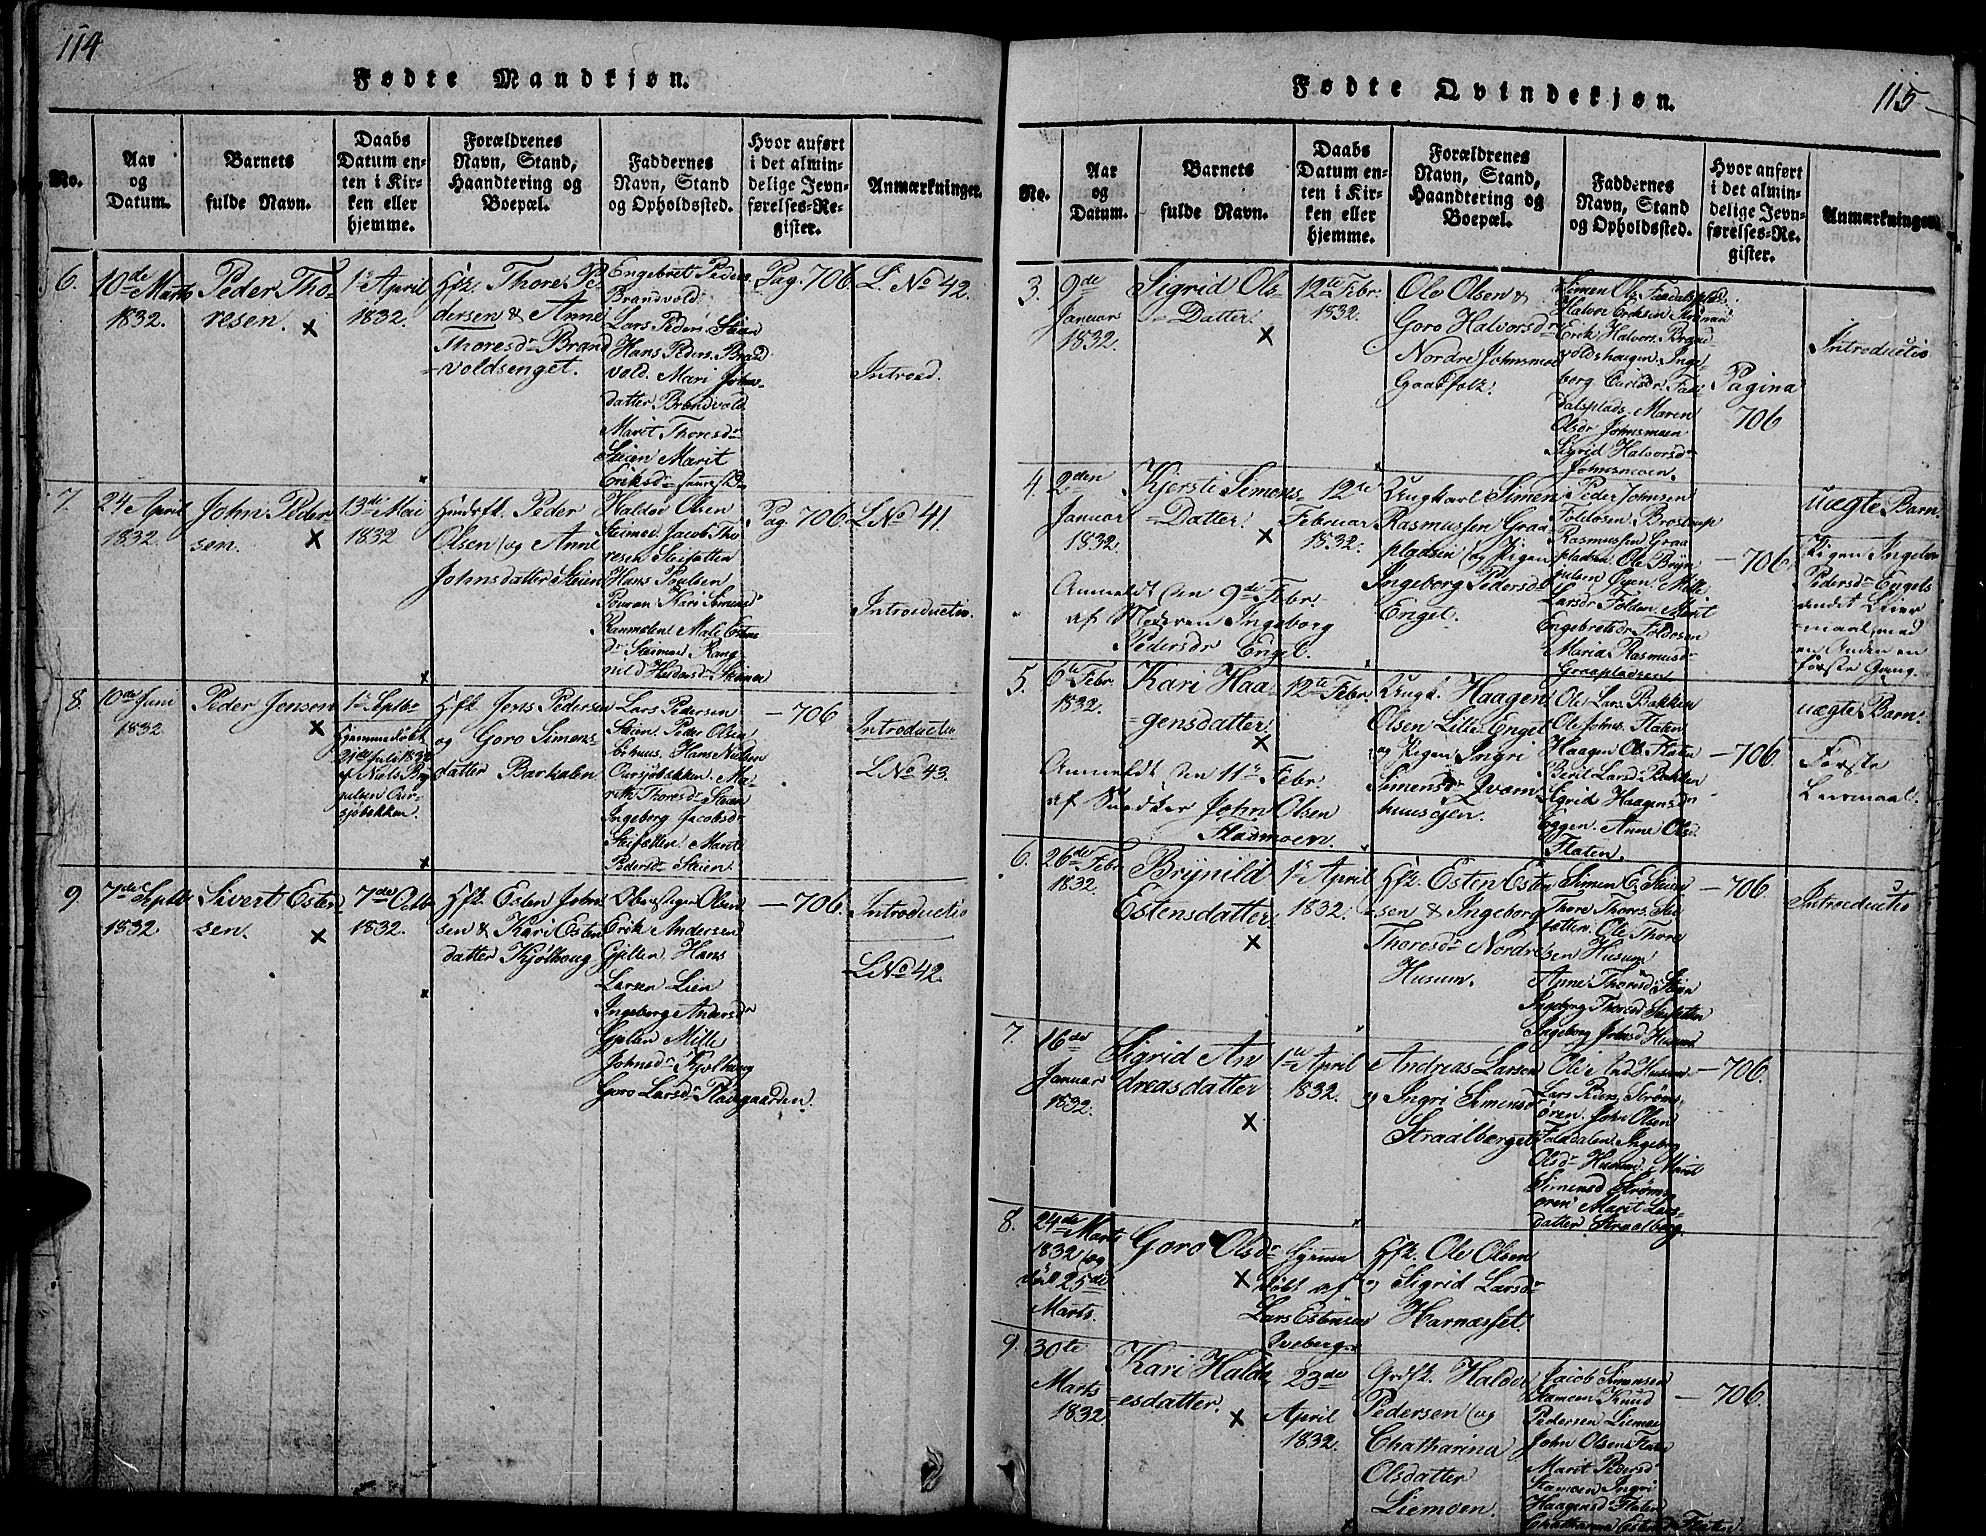 114
Fødte Mandkjøn.
No.
Aar
og
Datum.
Barnets
fulde Navn.
Daabs
Datum en-
ten i Kir-
ken eller
hjemme.
Forældrenes
Navn, Stand,
Haandtering og
Boepæl.
Faddernes
Navn, Stand
og Opholdssted.
Hvor anført
i det almin-
delige Jevn-
førelses-Re-
gister.
Anmærkninger.
6.
10de Marts
1832.
Peder Tho-
resen. x
1te April
1832.
Hfk. Thore Pe-
dersen & Anne
Thoresdr Brand
=voldsenget.
Engebret Peders.
Brandvold.
Lars Peders. Steien
Hans Peders. Brand
vold. Mari Johns-
datter Brandvold
Marit Thoresdr
Steien Marit
Eriksdr
Pag. 706.
L. No 42.
Introd.
7.
24de April
1832.
John Peder-
sen. x
13de Mai
1832
Peder
Olsen og Anne
Johnsdatter Steien
Haldor Olsen
Steimoe. Jacob Tho-
resen
Hans Poulsen
Kari Simensdr
Pag. 706.
L No 41.
Introductio.
8.
10de Juni
1832
Peder Jensen
x
1te Septbr
Hjemmedøbt
Juli 1832
af Niels Bry
julsen
Hfk. Jens Pedersen
og Goro Simens-
datter Barhaln
Lars Pedersen
Steien. Peder Olsen
Hans Nielsen
Thoresdr Steien
Ingeborg Jacobsdr
Marit
Pedersdr Steien.
- 706
Introductio
L No 43.
9
7de Septbr
1832
Sivert Esten-
sen. x
7de Octb
1832.
Hfk. Esten John-
sen & Kari Esten
datter Kjølhoug
Olsen
Erik Andersen
Gjelten. Hans
Larsen Lien
Ingeborg Andersdr
Mille
Johnsdr Kjølhoug
Goro Larsdr Plasgaarden.
- 706.
Introductio
L No 42.
115
Fødte Qvindekjøn.
No.
Aar
og
Datum.
Barnets
fulde Navn.
Daabs
Datum en-
ten i Kir-
ken eller
hjemme.
Forældrenes
Navn, Stand,
Haandtering og
Boepæl.
Faddernes
Navn, Stand
og Opholdssted.
Hvor anført
i det almin-
delige Jevn-
førelses-Re-
gister.
Anmærkninger.
3.
9de
Januar
1832.
Sigrid Ols-
Datter.
x
12te Febr.
1832.
Ole Olsen &
Goro Halvorsdr
Nordre Johnsmoe
Gaardfolk.
Simen Ols.
Halvor Eriksen
Erik Halvors.
voldshaugen. Inge-
borg Carlsdr
dalsplads. Maren
Olsdr Johnsmoen
Sigrid Halvorsdr
Johnsmoen.
Pagina
706
Introductio
4.
2den
Januar
1832.
Kjersti Simens-
=Datter.
x
12te
Februar
1832.
Ungkarl Simen
Rasmussen Graa
pladsen og Pigen
Ingeborg Pedersdr
Engel.
Peder Johnsen
Foldosen.
Rasmussen Graa
pladsen. Ole Bryn
julsen Øyen. Mille
Larsdr Folden. Marit
Engebretsdr Foldosen
Maria Rasmusdr
Graapladsen
- 706
uægte Barn.
Pigen Ingebor
Pedersdr Engels
andet Leier
=maal, med
en Anden en
første Gang.
Anmeldt den 9de Febr.
af Moderen Ingeborg
Pedersdr Engel.
5.
6te Febr
1832.
Kari Haa-
=gensdatter.
x
12te Febr.
Ungk. Haagen
Olsen Lille Engel
og Pigen Ingri
Simensdr Qvarn
huusøien.
Ole Lars. Bakken
Ole Johns. Flaten
Haagen Ols. Flaten
Beril Larsdr Bakken
Sigrid Haagensdr
Eggen. Anne Olsd.
Flaten.
- 706
uægte Barn.
Første
Leiermaal.
Anmeldt den 11te Febr.
af Snedker John Olsen
Aasmoen.
6.
26de Febr
1832.
Brynild
Estensdatter
x
1te April
1832.
Hfk. Esten Esten
=sen & Ingeborg
Thoresdr Nordre
Husum.
Simen E. Steien
Thore Thores.
Ole Thore
sen Husum
Anne Thoresdr
Ingeborg Thoresd
Ingeborg Johnsd Husum
- 706.
Introductio
7.
16de
Januar
1832.
Sigrid An
dreasdatter
x
1te April
1832.
Andreas Larsen
og Ingri Simensd
Straalberget
Ole And. Husum
Lars Peders. Strøms-
øren. John Olsen
Foldalen. Ingeborg
Olsdr Husum. Marit
Simensd Strøms
øren. Marit Lars-
datter Straalberg.
- 706.
8.
24de Marts
1832 og
død 25de
Marts.
Goro Olsdr
x
Hjemme
døbt af
Lars Estensen
Qveberg.
Hfk. Ole Olsen
og Sigrid Larsdr
Harnæsset.
9.
30te
Marts
1832
Kari Haldo-
=esdatter.
x
23de
April
1832.
Grdfk. Haldor
Pedersen og
Chatharina
Olsdatter
Liemoen.
Jacob Simensen
Stamoen Knud
Pedersen Liemoe
John Olsen Flate
Marit Pedersd
Stamoen Ingri
Haagensd Flaten
Chatharina Estensd Flaten
- 706.